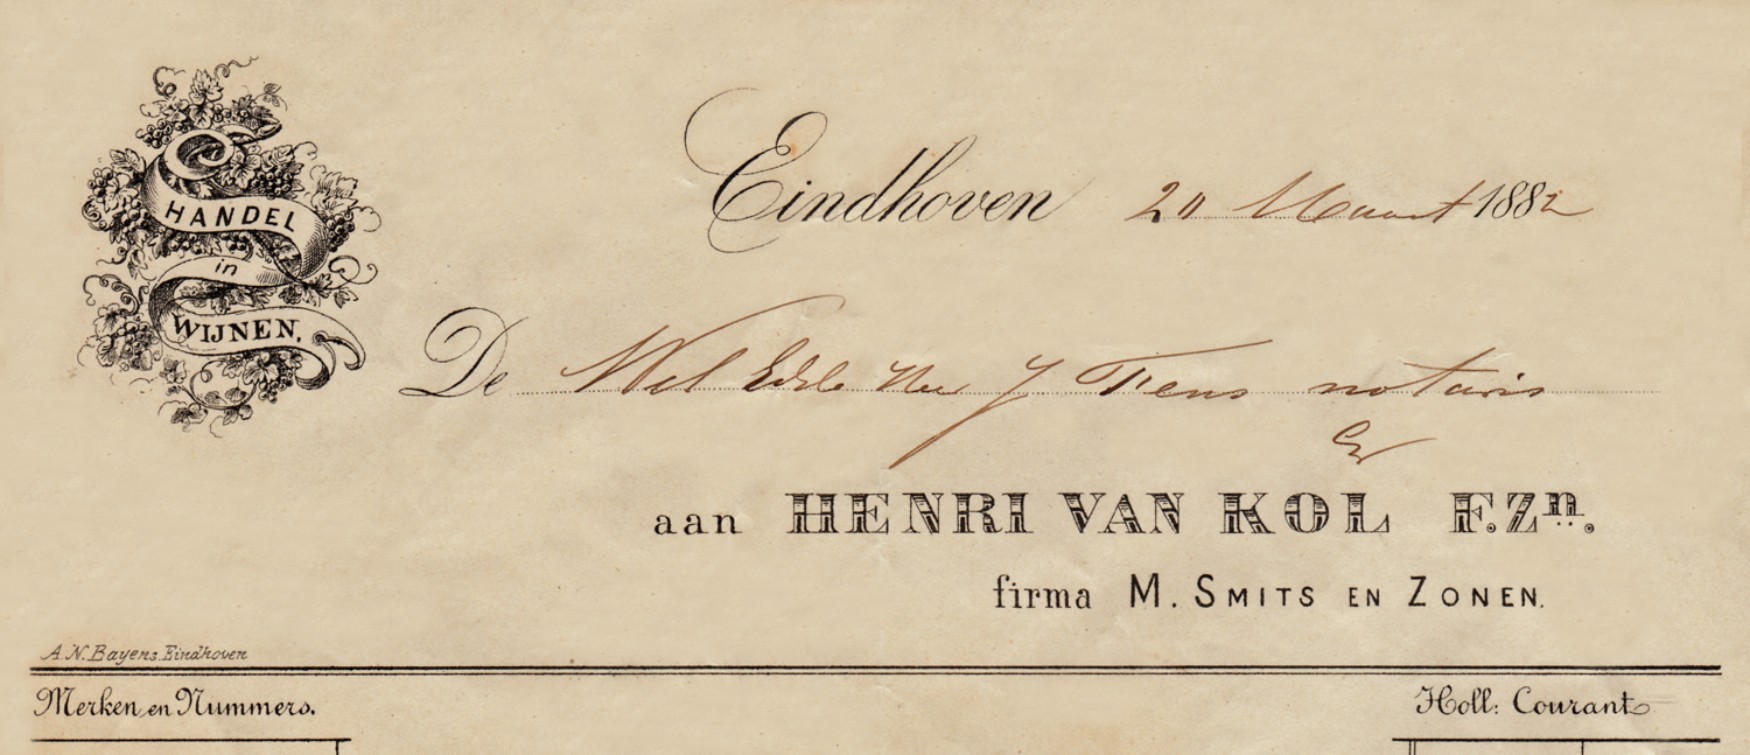 HANDEL
in
WIJNEN.
Eindhoven 20 Maart 1882
De Wel Edele Heer J Fens notaris
aan HENRI VAN KOL F.Zn.
firma M. SMITS EN ZONEN.
A.N. Bayens. Eindhoven
Merken en Nummers.
Holl: Courant